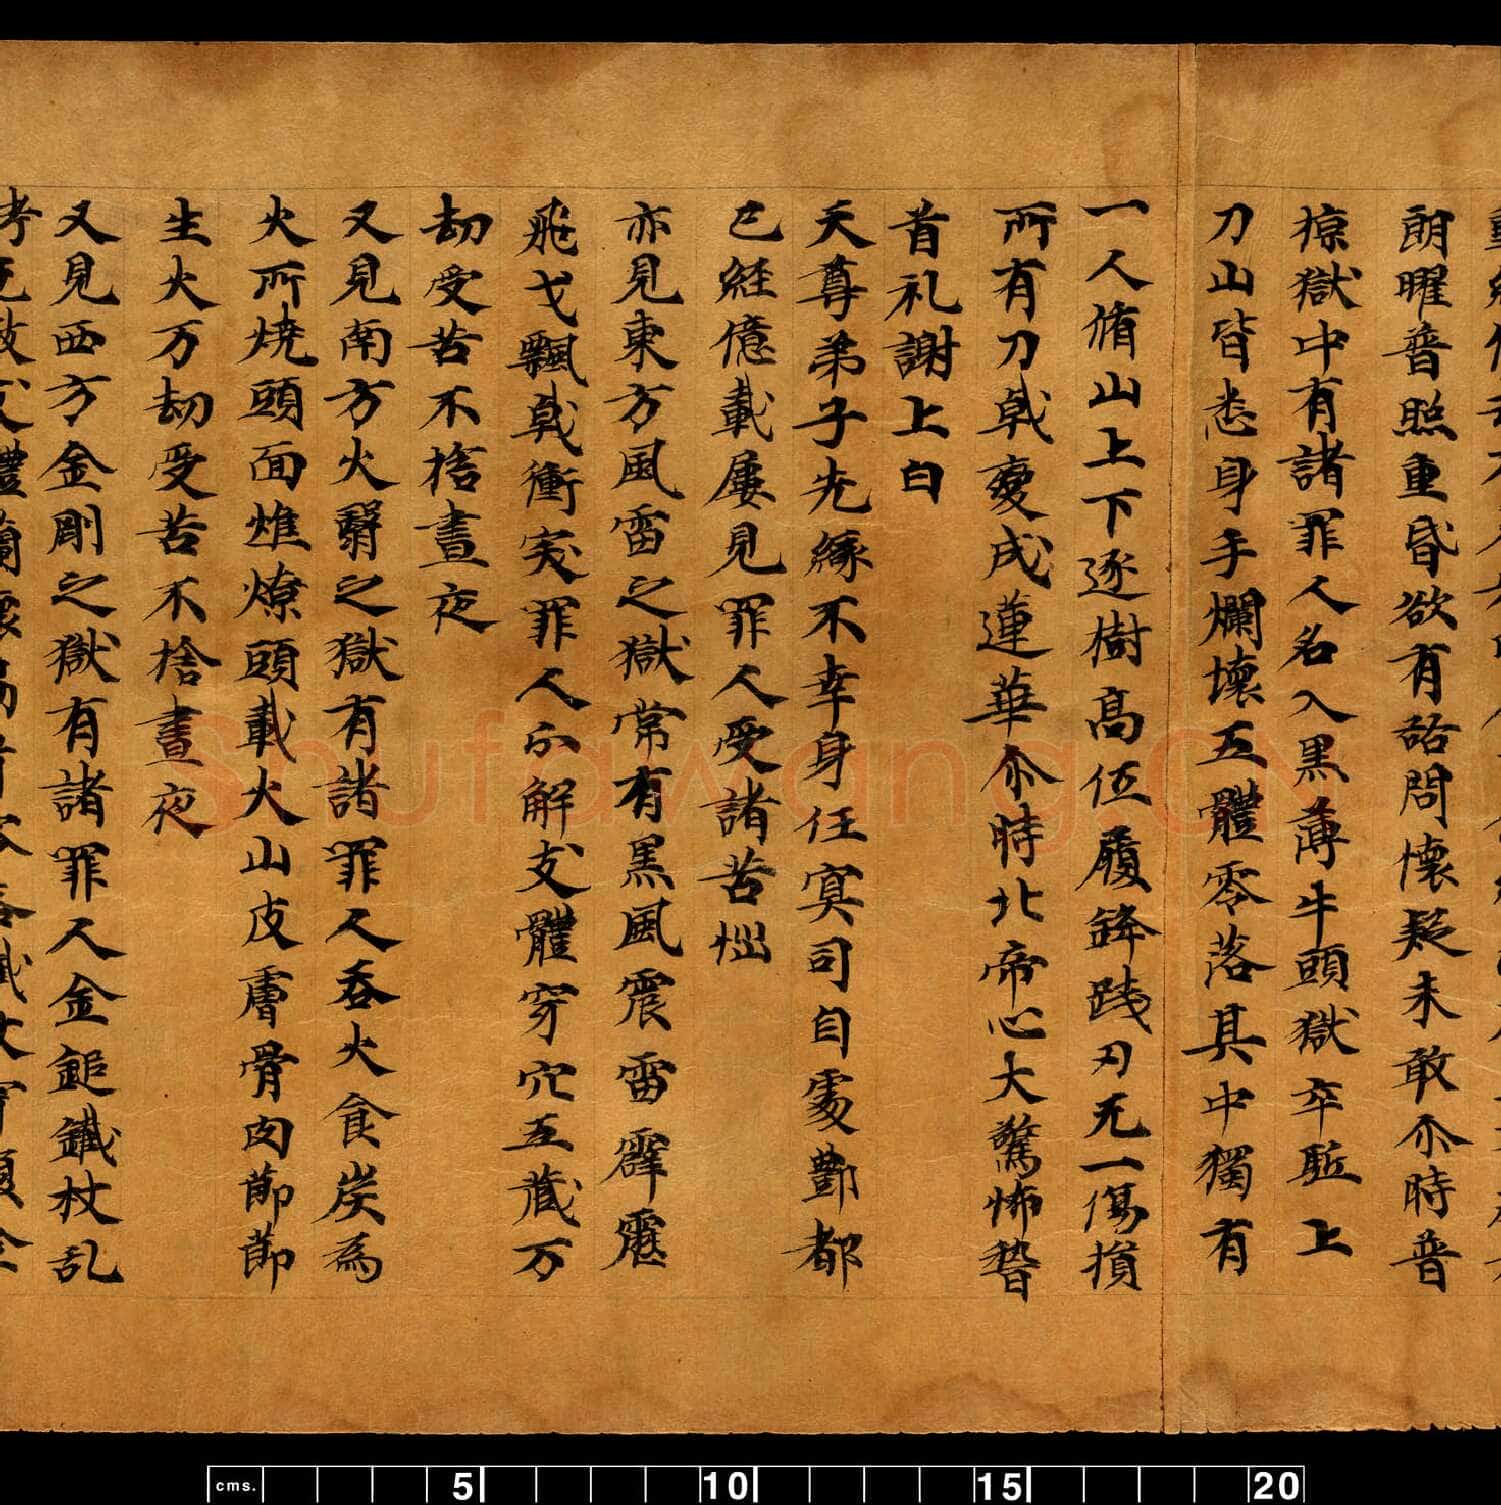 朗曜普照重昏欲有詰問懷疑未敢尒時普
掠獄中有諸罪人名入黑薄牛頭獄卒駈上
刀山皆悉身手爛壞五體零落其中獨有
一人脩山上下逐樹高伍履鋒踐刃无一傷損
所有刀戟變成蓮華尒時北帝心大驚怖𥡴
首礼謝上白
天尊弟子先緣不幸身任冥司自處酆都
已經億載屢見罪人受諸苦惱
亦見東方風雷之獄常有黑風震雷霹靂
飛戈飄戟衝突罪人分解支體穿穴五藏万
劫受苦不捨晝夜
又見南方火翳之獄有諸罪人吞火食炭為
火所燒頭面燋燎頭載火山皮膚骨肉節節
生火万劫受苦不捨晝夜
又見西方金剛之獄有諸罪人金鎚鐵杖乱
shufawang.cn
cms. 5 10 15 20